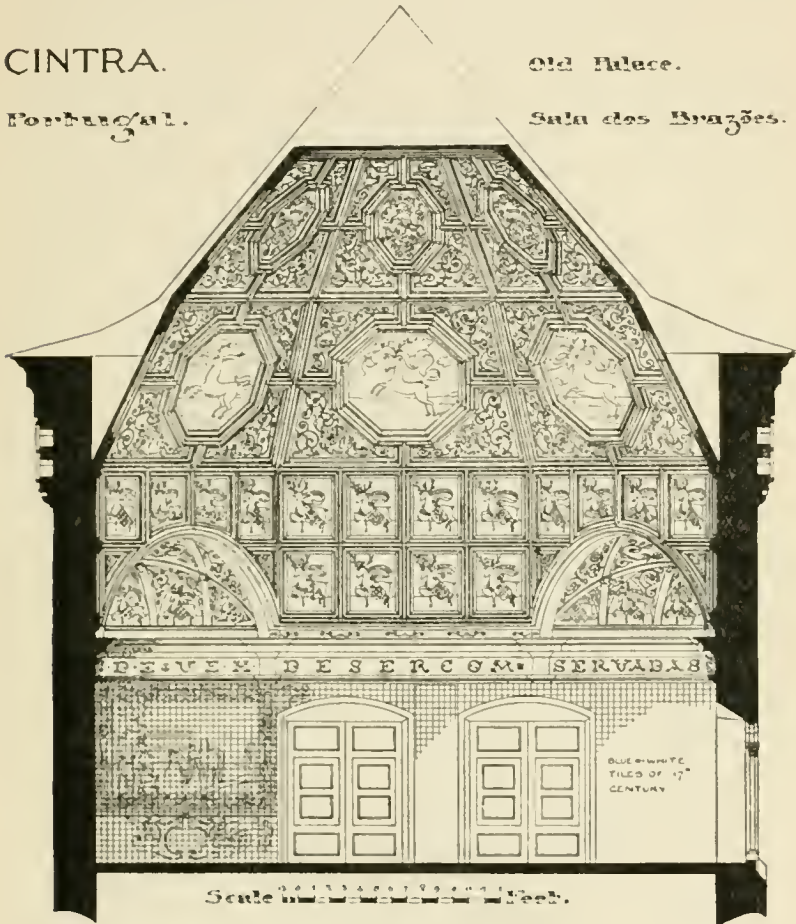 CINTRA.
Old Palace.
Portugal.
Sala dos Brazões.
DEVEM DESERCOM SERVADAS
BLUE & WHITE
TILES OF 17TH
CENTURY
Scale Feet.